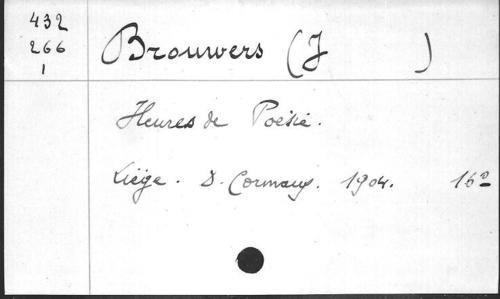 432
266
1
Brouwers (J )
Heures de Poésie.
Liége. D. Cormaux. 1904. 16º